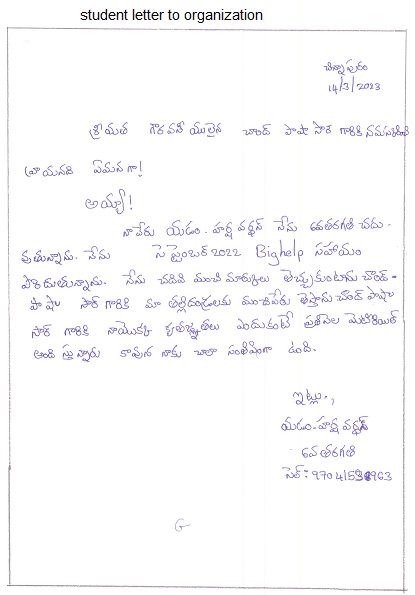 student letter to organization
చిన్నాపురం
14/3/2023
శ్రీయుత గౌరవనీయులైన చాంద్ పాషా సార్ గారికి నమస్కరించి
వ్రాయునది ఏమనగా!
అయ్యా!
నాపేరు యడం. హర్ష వర్ధన్ నేను 6వతరగతి చదు-
వుతున్నాను. నేను సెప్టెంబర్ 2022 Bighelp సహాయం
పొందుతున్నాను. నేను చదివి మంచి మార్కులు తెచ్చుకుంటాను చాంద్-
పాషా సార్ గారికి మా తల్లిదండ్రులకు మంచిపేరు తెస్తాను చాంద్ పాషా
సార్ గారికి నాయొక్క కృతజ్ఞతలు ఎందుకంటే ప్రతినెల మెటీరియల్
అంది స్తున్నారు కావున నాకు చాలా సంతోషంగా ఉంది.
ఇట్లు.,
యడం. హర్ష వర్ధన్
6వ తరగతి
సెల్:
G